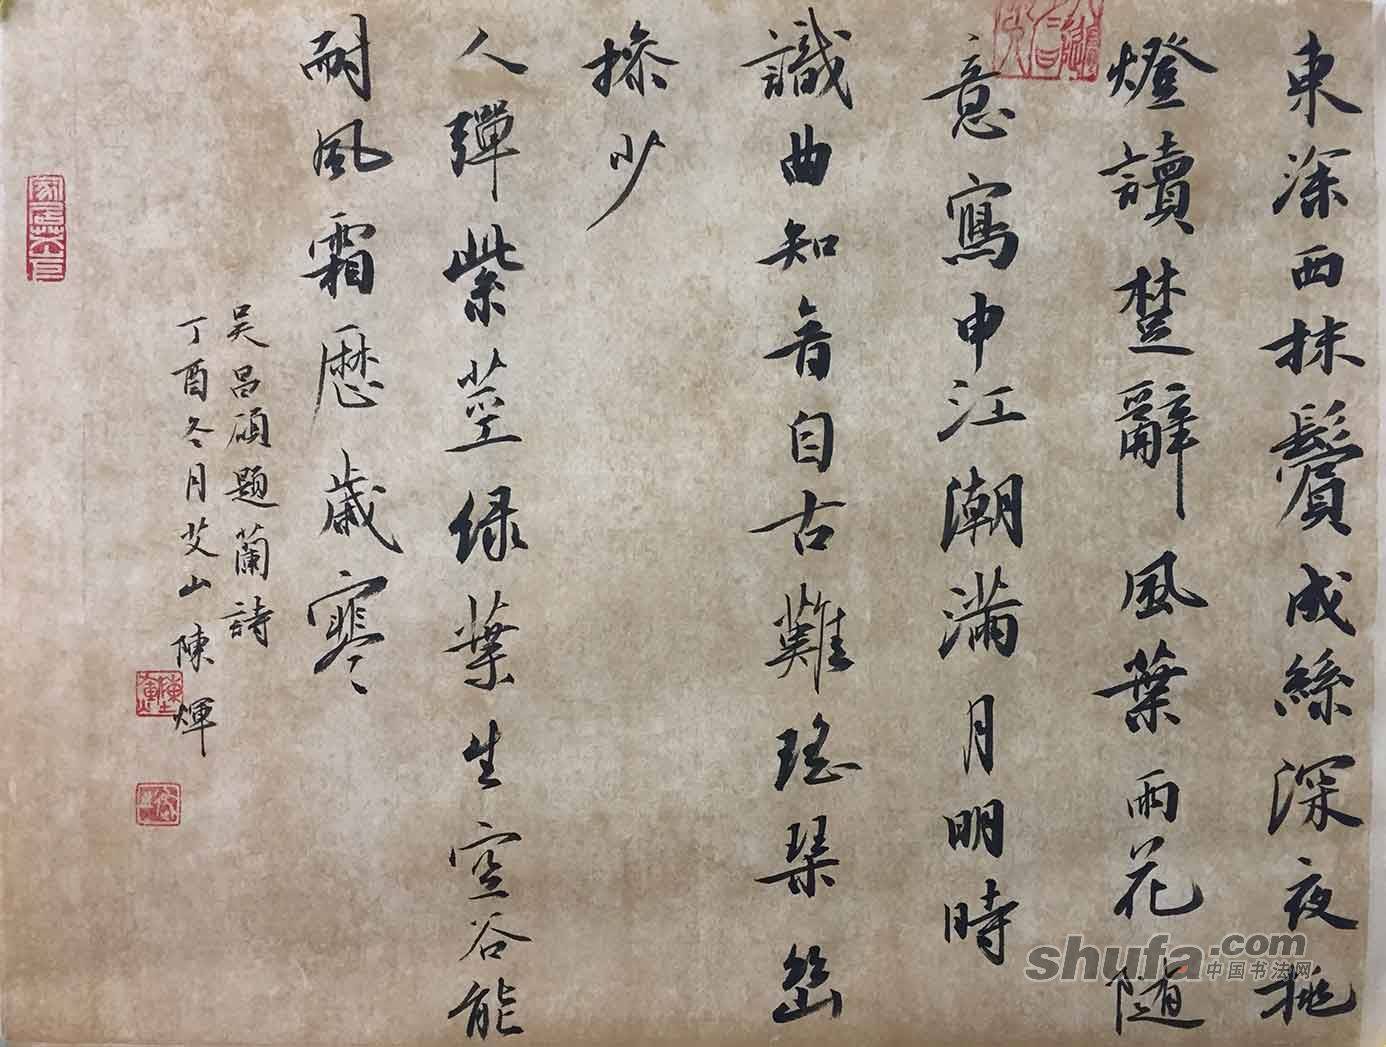 東涂西抹鬢成絲深夜挑
燈讀楚辭風葉雨花随
意寫申江潮滿月明時
識曲知音自古難瑶琴幽
操少
人彈紫莖绿葉生空谷能
耐風霜歷歲寒
吴昌碩题蘭詩
丁酉冬月艾山陳煇
shufa.com
中国书法网